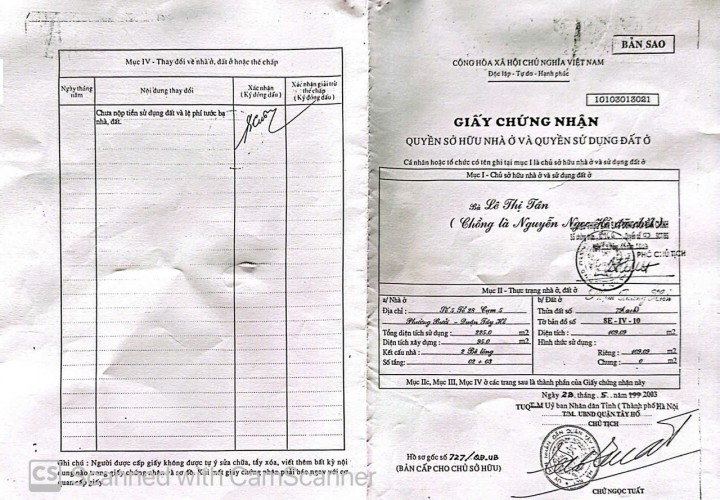 Mục IV - Thay đổi về nhà ở, đất ở hoặc thế chấp
Ngày tháng năm
Nội dung thay đổi
Xác nhận (Ký đóng dấu)
Xác nhận giải trừ thế chấp (Ký đóng dấu)
Chưa nộp tiền sử dụng đất và lệ phí tước bạ
nhà, đất.
Ghi chú : Người được cấp giấy không được tự ý sửa chữa, tẩy xóa, viết thêm bất kỳ nội
dung nào trong giấy chứng nhận
giấy chứng nhận phải báo ngay với cơ
quan cấp giấy.
CS Scanned with CamScanner
BẢN SAO
CỘNG HÒA XÃ HỘI CHỦ NGHĨA VIỆT NAM
Độc lập - Tự do - Hạnh phúc
10103013021
GIẤY CHỨNG NHẬN
QUYỀN SỞ HỮU NHÀ Ở VÀ QUYỀN SỬ DỤNG ĐẤT Ở
Cá nhân hoặc tổ chức có tên ghi tại mục I là chủ sở hữu nhà ở và sử dụng đất ở
Mục I - Chủ sở hữu nhà ở và sử dụng đất ở
Bà Lê Thị Tân
( Chồng là Nguyễn Ngọc
PHÓ CHỦ TỊCH
Mục II - Thực trạng nhà ở, đất ở
a/ Nhà ở
Địa chỉ : Số 5 Tổ 28 Cụm 5
Phường Bưởi - Quận Tây Hồ
Tổng diện tích sử dụng : 225.0 m2
Diện tích xây dựng : 95.0 m2
Kết cấu nhà : 2 Bê tông
Số tầng: 02 + 03
b/ Đất ở
Thửa đất số
Tờ bản đồ số 5E - IV - 10
Diện tích : 109.09 m2
Hình thức sử dụng:
Riêng : 109.09 m2
Chung : 0 m2
Mục IIc, Mục III, Mục IV ở các trang sau là thành phần của Giấy chứng nhận này
Ngày 28 tháng 5 năm 2003
TUQ T.M Uỷ ban Nhân dân Tỉnh ( Thành phố Hà Nội
T/M. UBND QUẬN TÂY HỒ
CHỦ TỊCH
Hồ sơ gốc số 727/QĐ.UB
(BẢN CẤP CHO CHỦ SỞ HỮU)
CHỦ NGỌC TUẤT